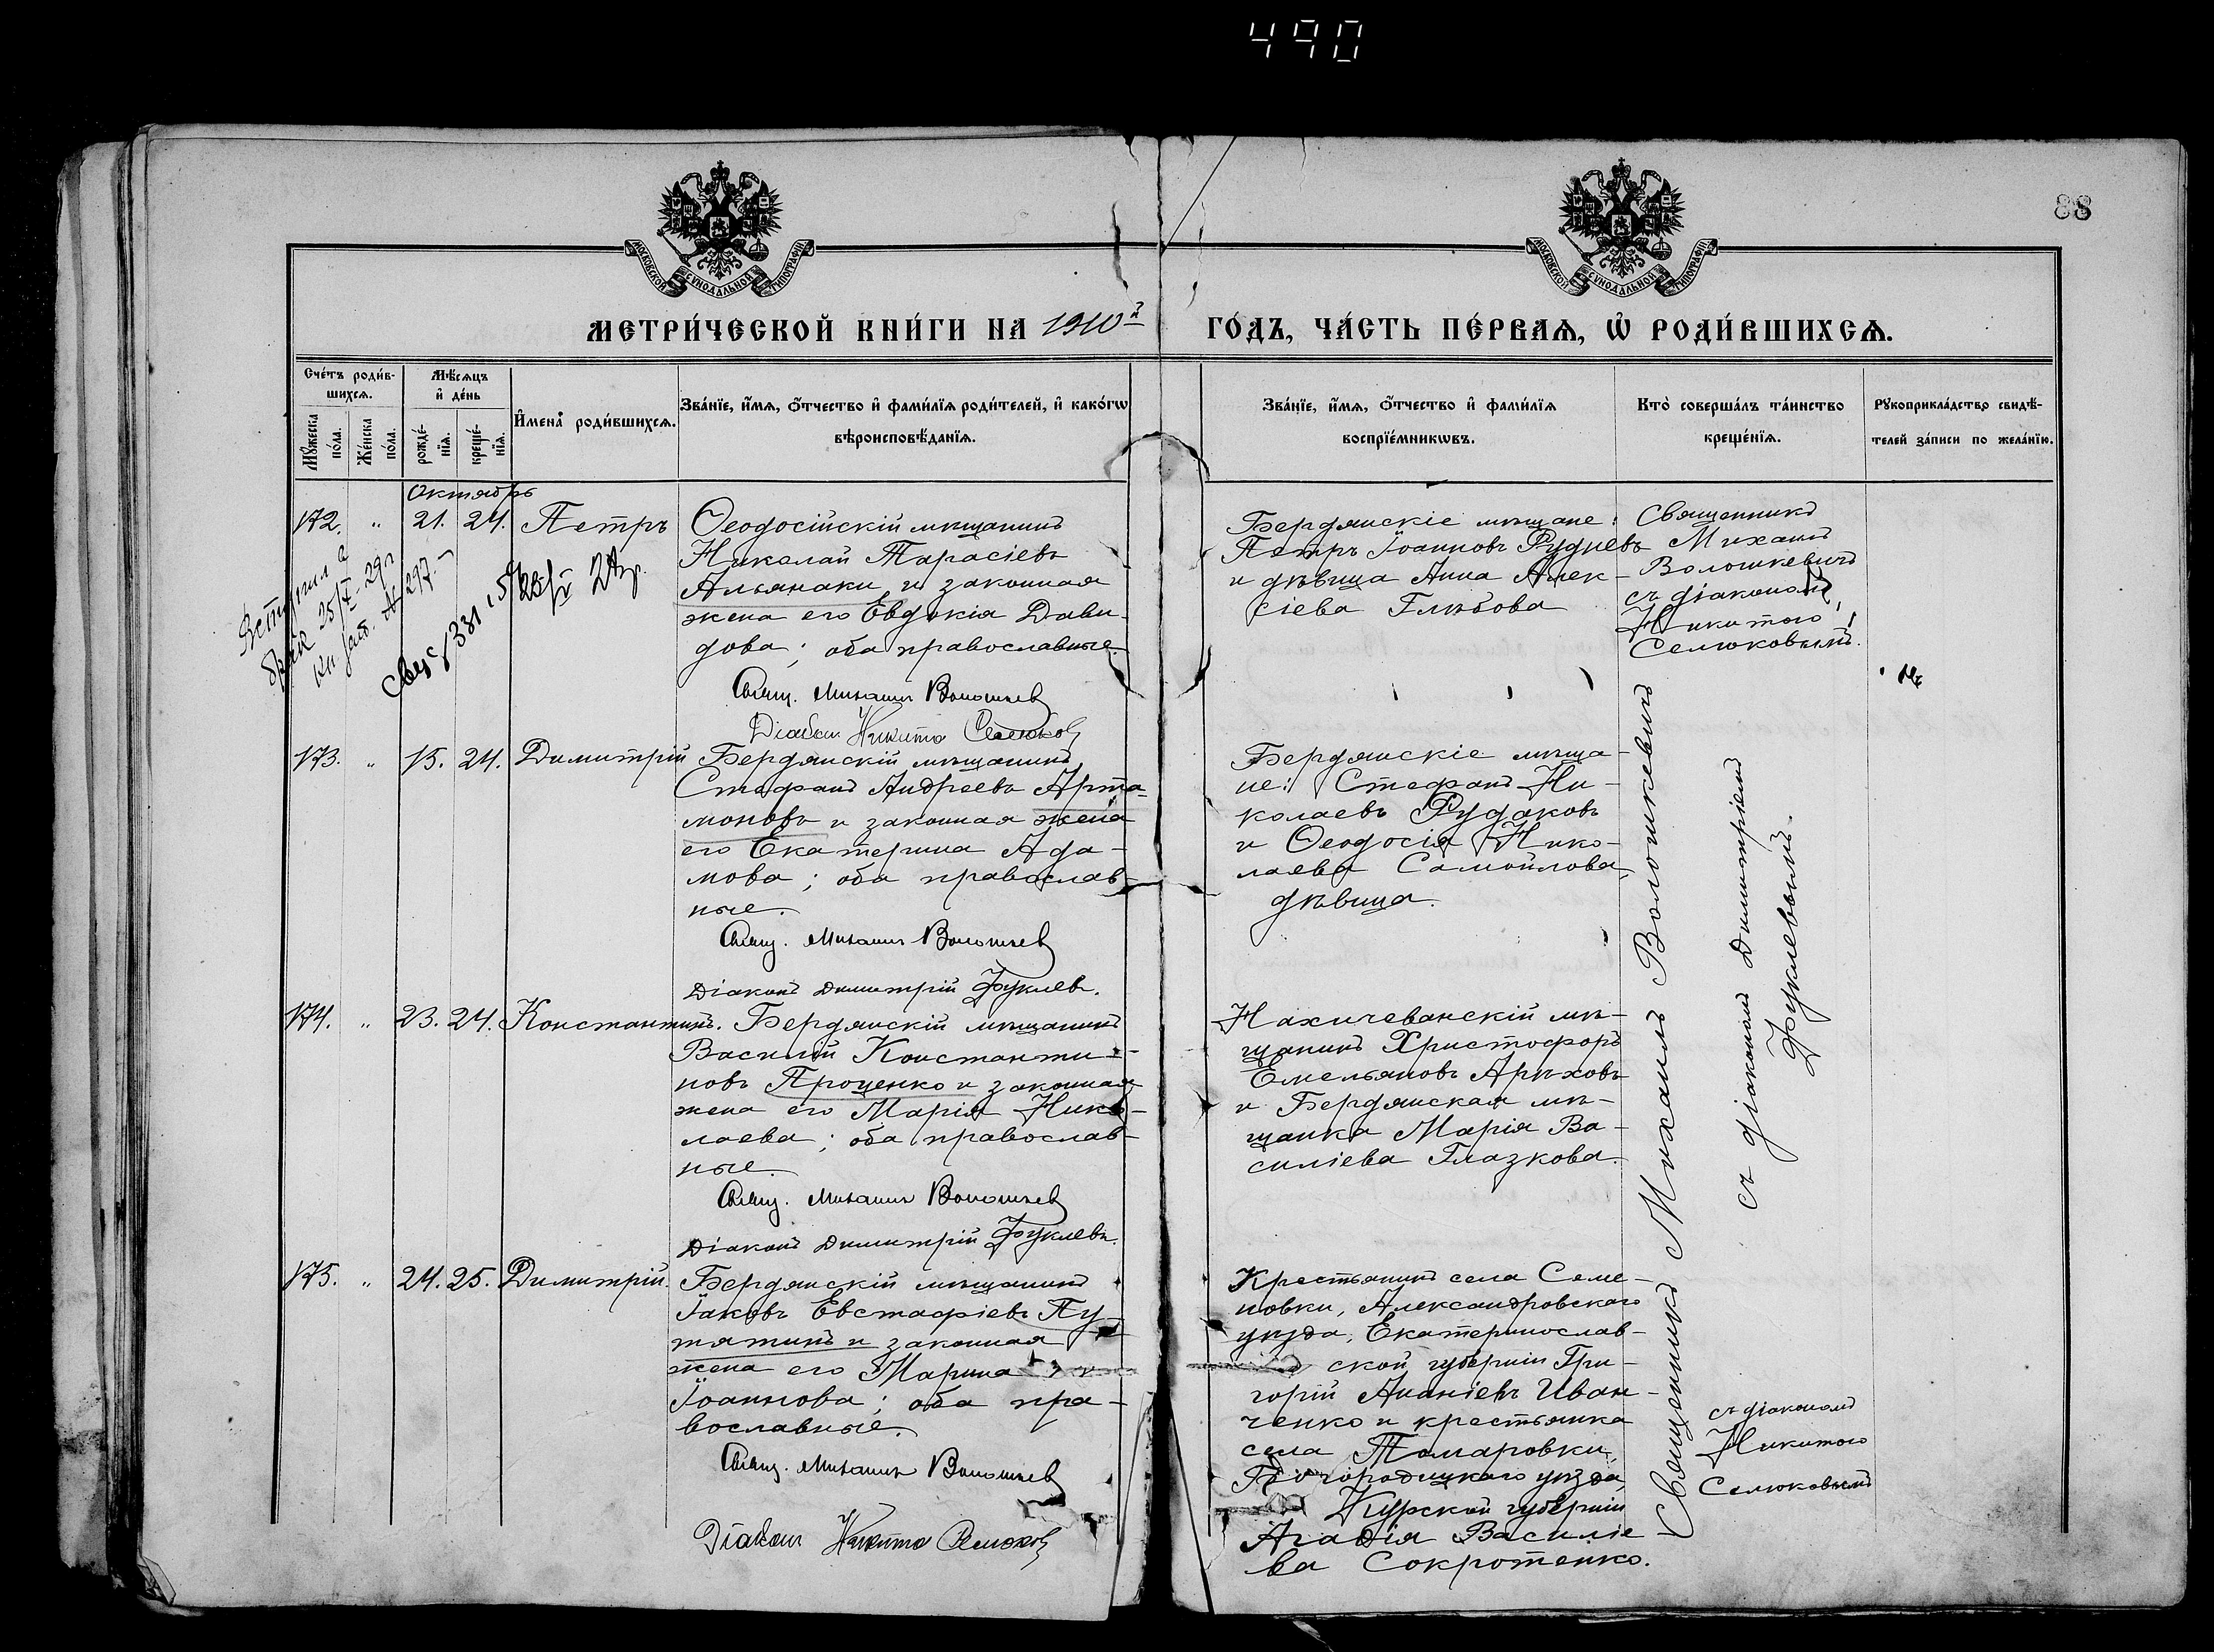 490
88
МОСКОВСКОЙ СѴНОДАЛЬНОЙ ТИПОГРАФІИ
МОСКОВСКОЙ СѴНОДАЛЬНОЙ ТИПОГРАФІИ
МЕТРИ́ЧЕСКОЙ КНИ́ГИ НА 1910й ГО́ДЪ, ЧА́СТЬ ПЕ́РВАѦ, Ѡ҆ РОДИ́ВШИХСѦ.
Сче́тъ роди́в-
шихсѧ.
Мꙋ́жеска по́ла.
Же́нска по́ла.
Мѣ́сѧцъ
и҆ де́нь
рожде́-
нїѧ.
креще́-
нїѧ.
И҆мена̀ роди́вшихсѧ.
Зва́нїе, и҆́мѧ, ѻ҆́тчество и҆ фами́лїѧ роди́телей, и҆ како́гѡ
вѣроисповѣ́данїѧ.
Зва́нїе, и҆́мѧ, ѻ҆́тчество и҆ фами́лїѧ
воспрїе́мникѡвъ.
Кто̀ соверша́лъ та́инство
креще́нїѧ.
Рꙋкоприкла́дство свидѣ́-
телей за́писи по жела́нїю.
Октябрь
172. " 21. 24. Петръ
Ѳеодосійскій мѣщанинъ
Николай Тарасіевъ
Альянаки и законная
жена его Евдокія Дави-
дова; оба православные.
Свящ. Михаилъ Волошкев
Діаконъ Никита Селюковъ
Бердянскіе мѣщане:
Петръ Іоанновъ Рудневъ
и дѣвица Анна Алек-
сіева Глѣбова
Священникъ
Михаилъ
Волошкевичъ
съ діакономъ
Никитою
Селюковымъ.
Вступил в
брак 25/X-29г
173. " 15. 24. Димитрій
Бердянскій мѣщанинъ
Стефанъ Андреевъ Арта-
моновъ и законная жена
его Екатерина Ада-
мова; оба православ-
ные.
Свящ. Михаилъ Волошкев
Діаконъ Димитрій Фуклевъ.
Бердянскіе мѣща-
не: Стефанъ Ни-
колаевъ Рудаковъ
и Ѳеодосія Нико-
лаева Самойлова,
дѣвица.
174. " 23. 24. Константинъ.
Бердянскій мѣщанинъ
Василій Константи-
новъ Проценко и законная
жена его Марія Нико-
лаева; оба православ-
ные.
Свящ. Михаилъ Волошкев
Діаконъ Димитрій Фуклевъ.
Нахичеванскій мѣ-
щанинъ Христофоръ
Емельяновъ Арѣховъ
и Бердянская мѣ-
щанка Марія Ва-
силіева Глазкова.
Священникъ Михаилъ Волошкевичъ
съ діакономъ Димитріемъ
Фуклевымъ.
175. " 24. 25. Димитрій.
Бердянскій мѣщанинъ
Іаковъ Евстафіевъ Пу-
тятинъ и законная
жена его Марина
Іоаннова; оба пра-
вославные.
Свящ. Михаилъ Волошкев
Діаконъ Никита Селюковъ
Крестьянинъ села Семе-
новки, Александровскаго
уѣзда, Екатеринослав-
ской губерніи Гри-
горій Ананіевъ Иван-
ченко и крестьянка
села Томаровки,
уѣзда,
Курской губерніи
Агафія Василіе
ва Сокротенко.
съ діакономъ
Никитою
Селюковымъ